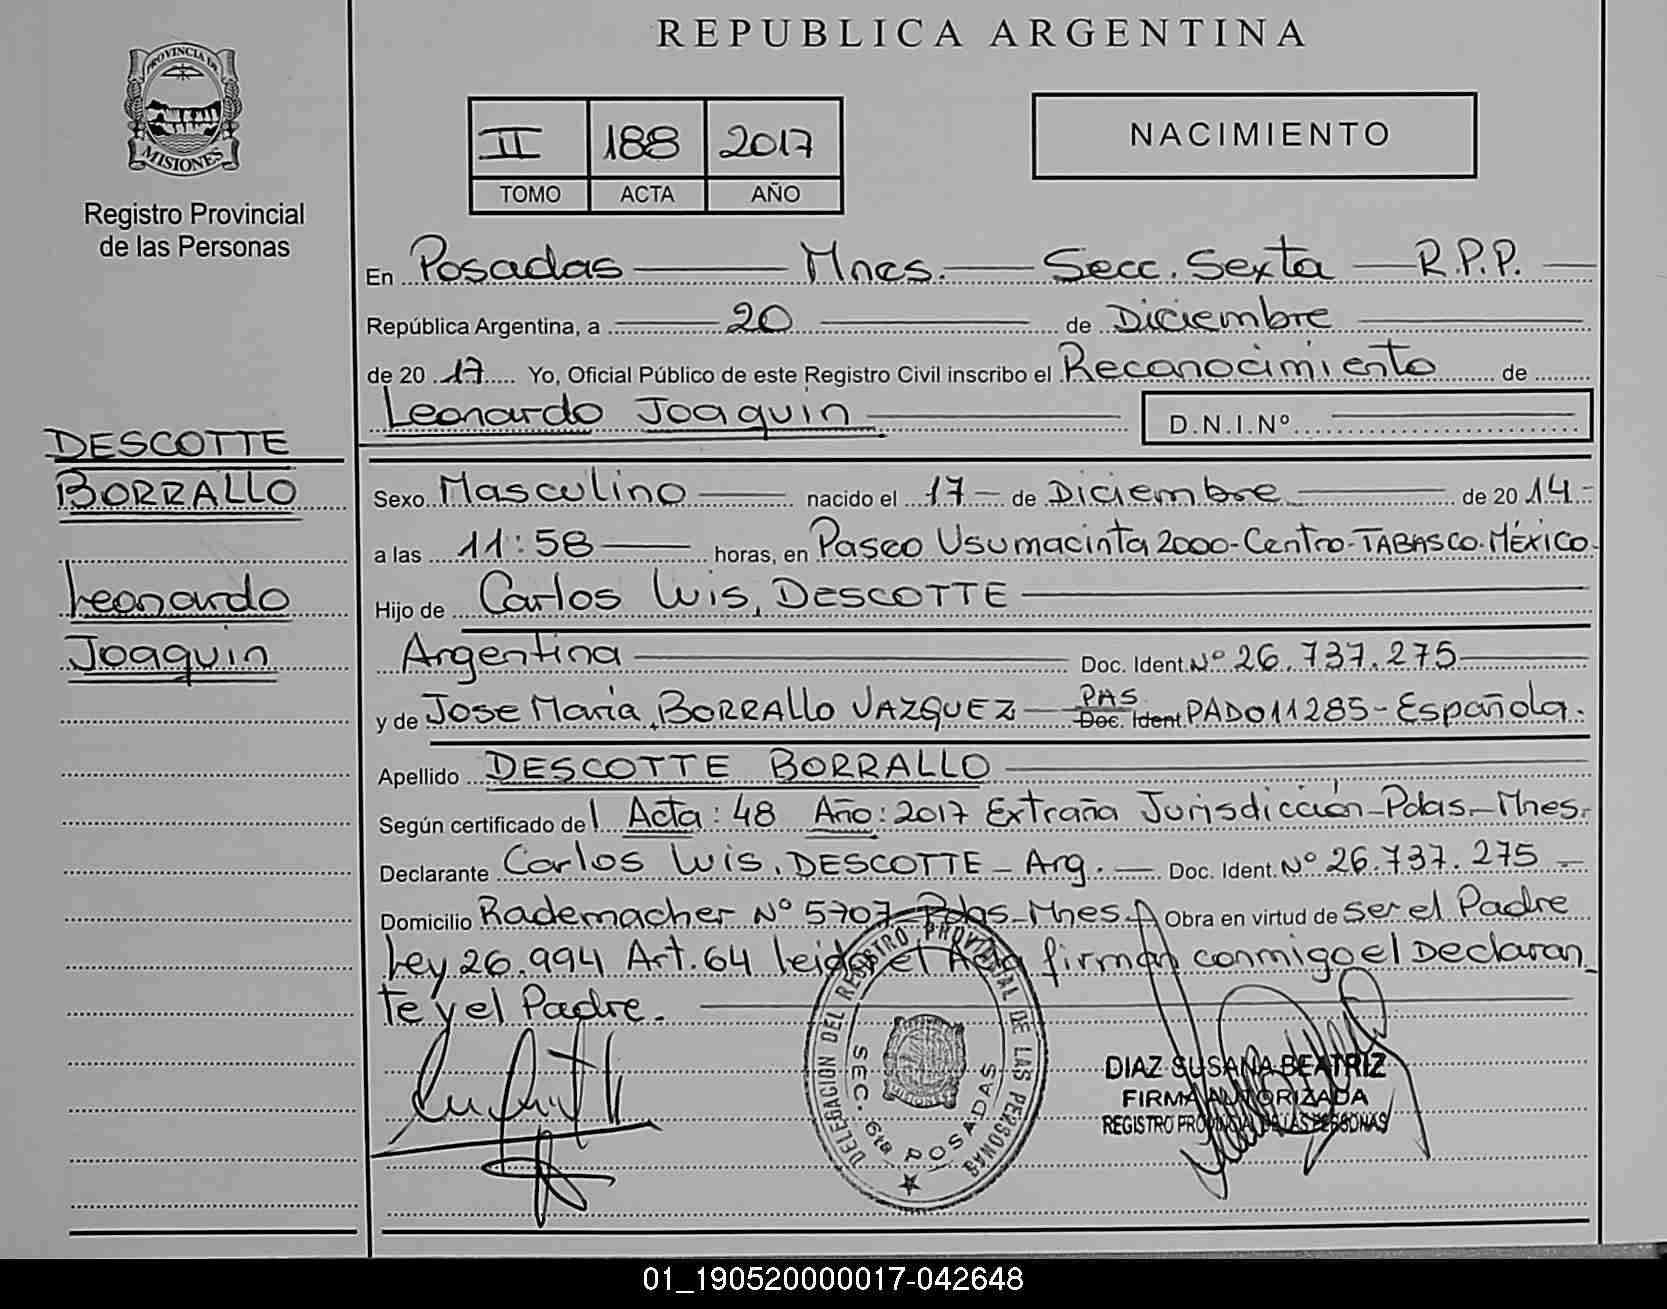 REPUBLICA ARGENTINA
PROVINCIA DE
MISIONES
Registro Provincial
de las Personas
II 188 2017
TOMO ACTA AÑO
NACIMIENTO
En Posadas Mnes. Secc. Sexta R.P.P.
República Argentina, a 20 de Diciembre
de 20 17 Yo, Oficial Público de este Registro Civil inscribo el Reconocimiento de
Leonardo Joaquin D.N.I.Nº
DESCOTTE
BORRALLO
Leonardo
Joaquin
Sexo Masculino nacido el 17 de Diciembre de 20 14
a las 11:58 horas, en Paseo Usumacinta 2000-Centro-TABASCO-MÉXICO
Hijo de Carlos Luis, DESCOTTE
Argentina Doc. Ident. Nº 26.737.275
y de Jose Maria, BORRALLO VAZQUEZ PAS Doc. Ident PAD011285-Española.
Apellido DESCOTTE BORRALLO
Según certificado del Acta: 48 Año: 2017 Extraña Jurisdicción-Pdas-Mnes.
Declarante Carlos Luis, DESCOTTE - Arg. Doc. Ident. Nº 26.737.275
Domicilio Rademacher Nº 5707 Pdas-Mnes. Obra en virtud de ser el Padre
Ley 26.994 Art. 64 leida el Acta firman conmigo el Declaran
te y el Padre.
DELEGACION DEL REGISTRO PROVINCIAL DE LAS PERSONAS
SEC. 6ta POSADAS
DIAZ SUSANA BEATRIZ
FIRMA AUTORIZADA
REGISTRO PROVINCIAL DE LAS PERSONAS
01_190520000017-042648